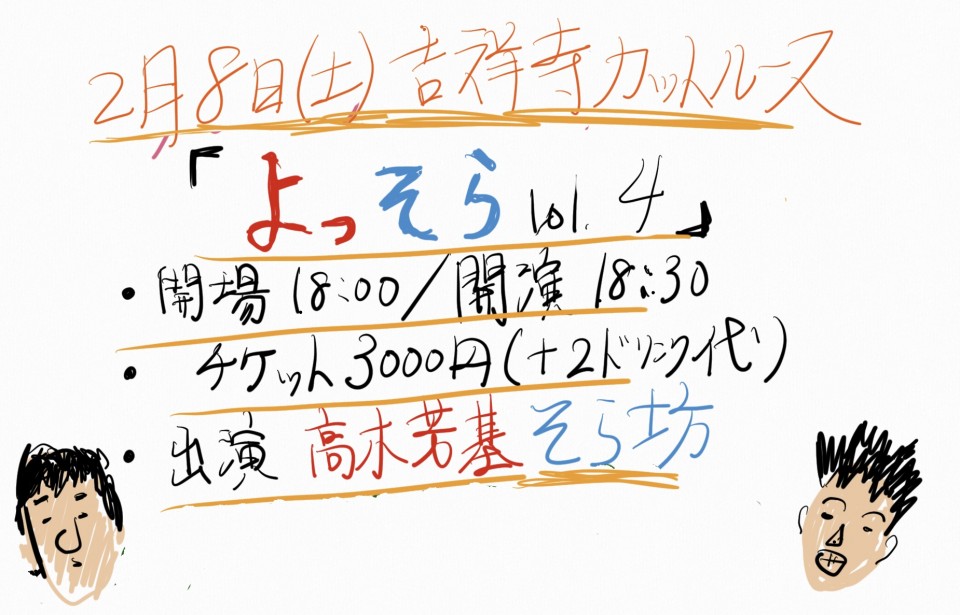 2月8日(土)吉祥寺カットルース
「よっそらvol.4」
・開場18:00/開演18:30
・チケット3000円(+2ドリンク代)
・出演 高木芳基 そら坊